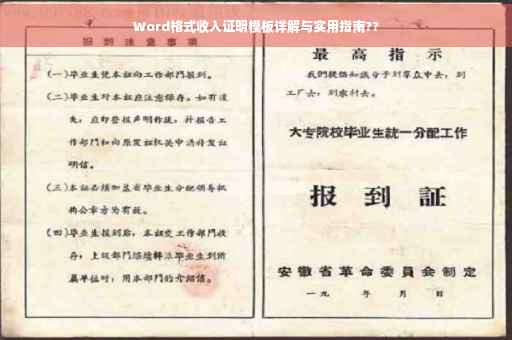 Word格式收入证明模板详解与实用指南??
报到注意事项
(一)毕业生凭本证向工作部门报到。
(二)毕业生对本证应注意保存。如有遗
失，应即登报声明作废，并报告工
作部门和向原发证机关申请补发证
明信。
(三)本证必须加盖省毕业生分配领导机
构公章方为有效。
(四)毕业生报到后，本证交工作部门收
存；上级部门
毕业生到所
属单位时，用本部门的介绍信。
最高指示
我们提倡知识分子到群众中去，到
工厂去，到农村去。
大专院校毕业生統一分配工作
报到証
安徽省革命委員会制定
一九 年 月 日